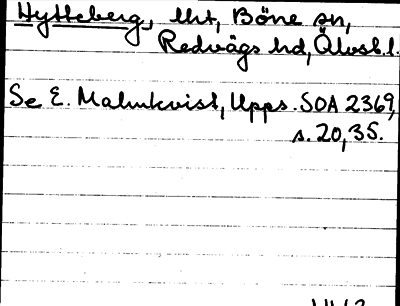 Hytteberg, lht, Böne sn,
Redvägs hd, Älvsb. l.
Se E. Malmkvist, Upps. SOA 2369,
s. 20, 35.